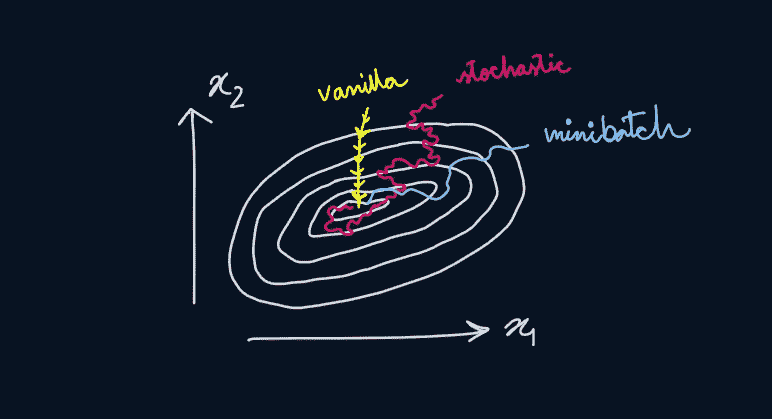 x₂
vanilla
stochastic
minibatch
x₁